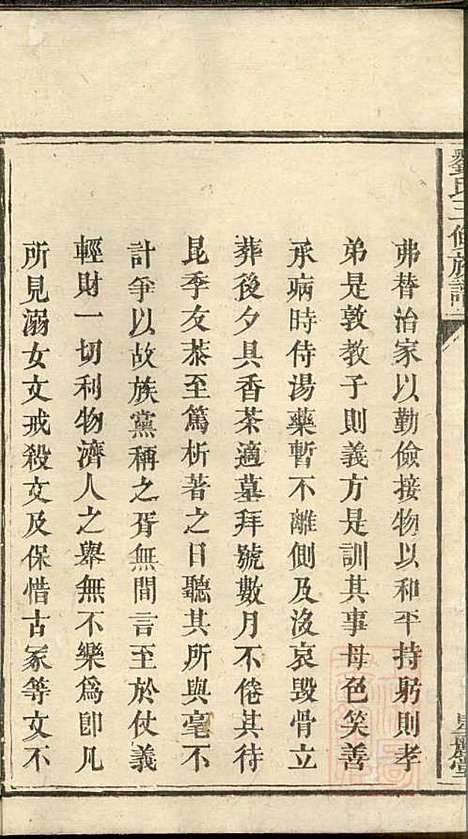 弗替治家以勤儉接物以和平持躬則孝
弟是敦教子則義方是訓其事母色笑善
承病時侍湯藥暫不離側及沒哀毀骨立
葬後夕具香茶適墓拜號數月不倦其待
昆季友恭至篤析著之日聽其所與毫不
計爭以故族黨稱之胥無間言至於仗義
輕財一切利物濟人之舉無不樂為即凡
所見溺女文戒殺文及保惜古冢等文不
劉氏三修族譜